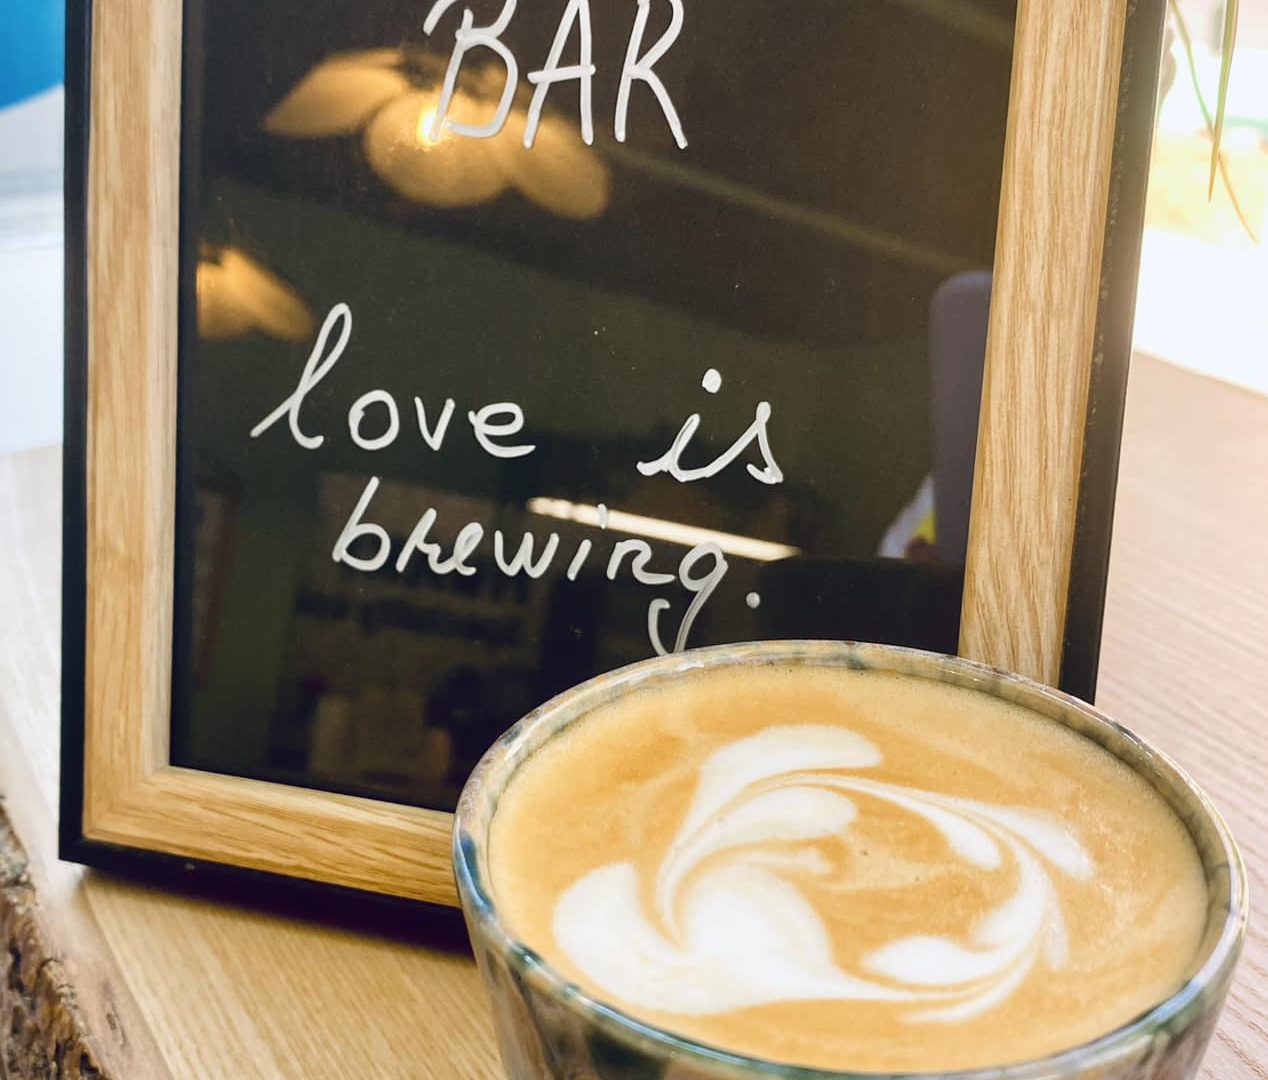 BAR
love is
brewing.